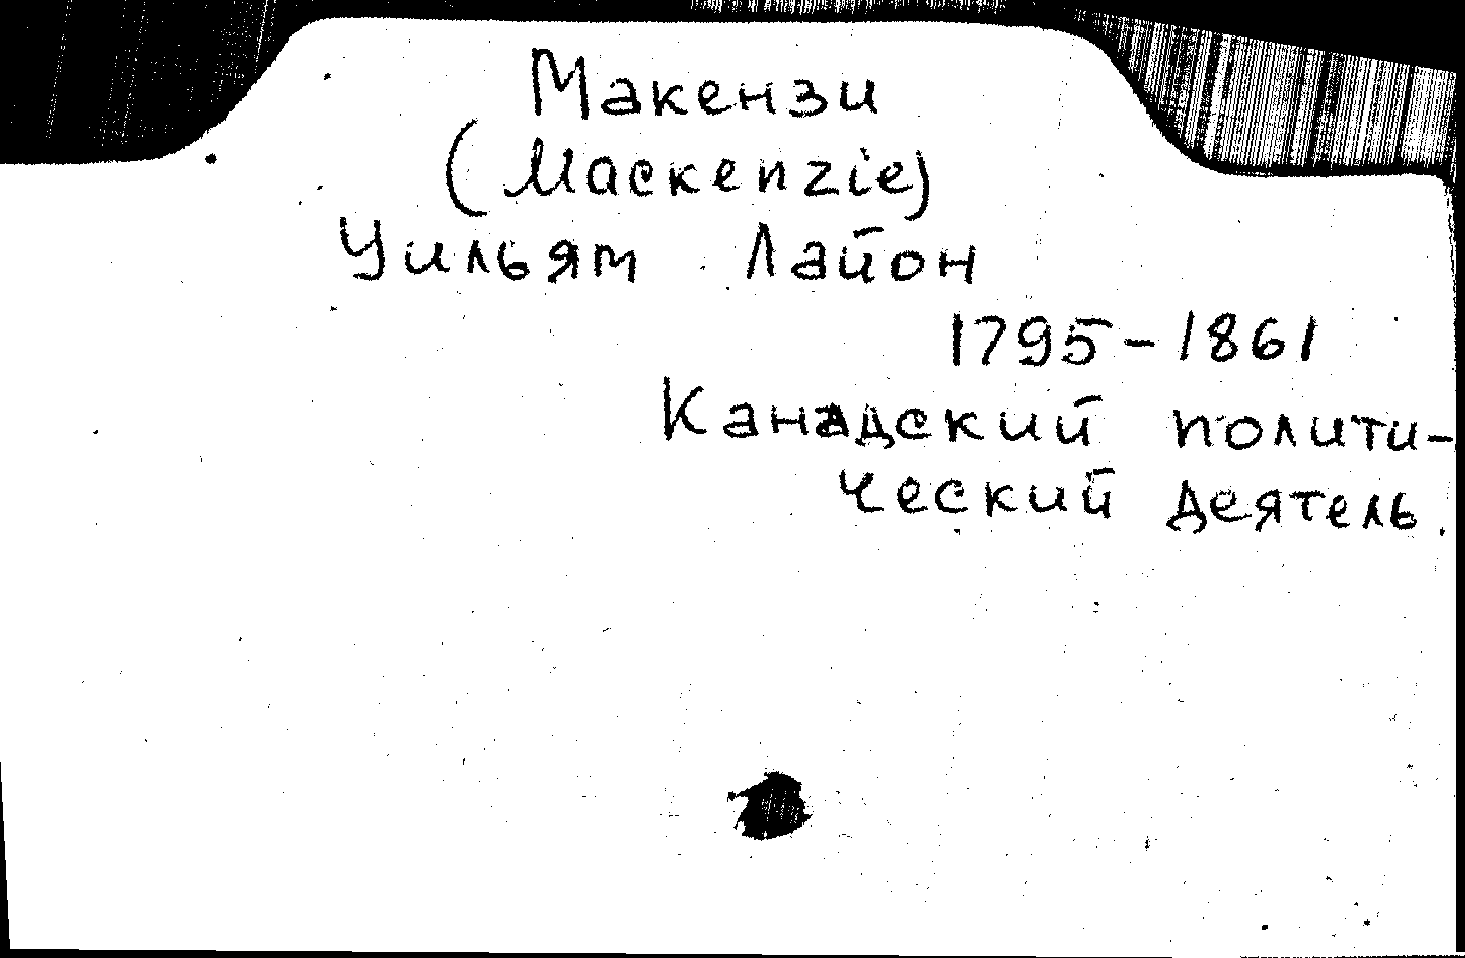 Макензи
(Mackenzie)
Уильям Лайон
1795-1861
Канадский полити-
ческий деятель.